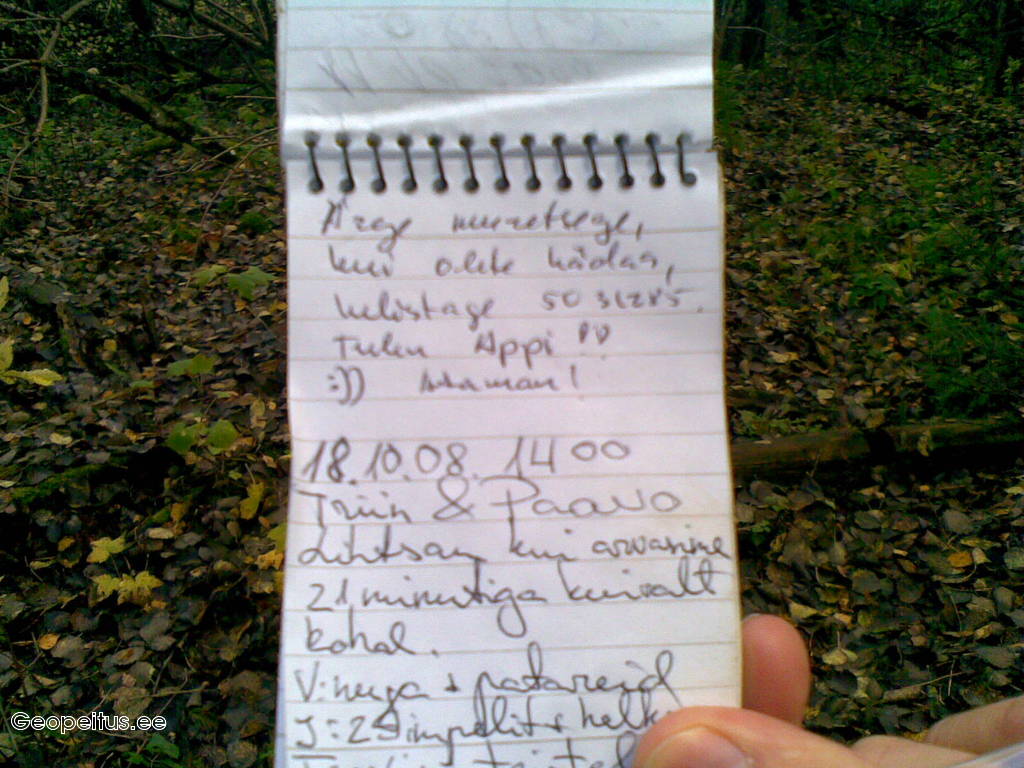 Ärge muretsege,
kui olete hädas,
helistage
Tulen Appi !!
:))
18.10.08. 14 00
Triin & Paavo
Lihtsam kui arvasime
21 minutiga kuivalt
kohal.
V: nuga + patareid
J: 2
Geopeitus.ee